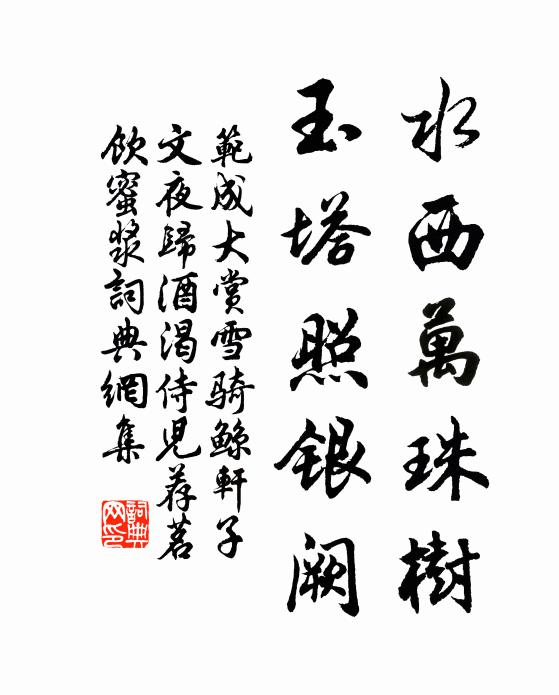 水西萬珠樹
玉塔照銀闕
範成大賞雪骑鲸軒子
文夜歸酒渴侍兒荐茗
飲蜜漿詞典網集
詞典
网印